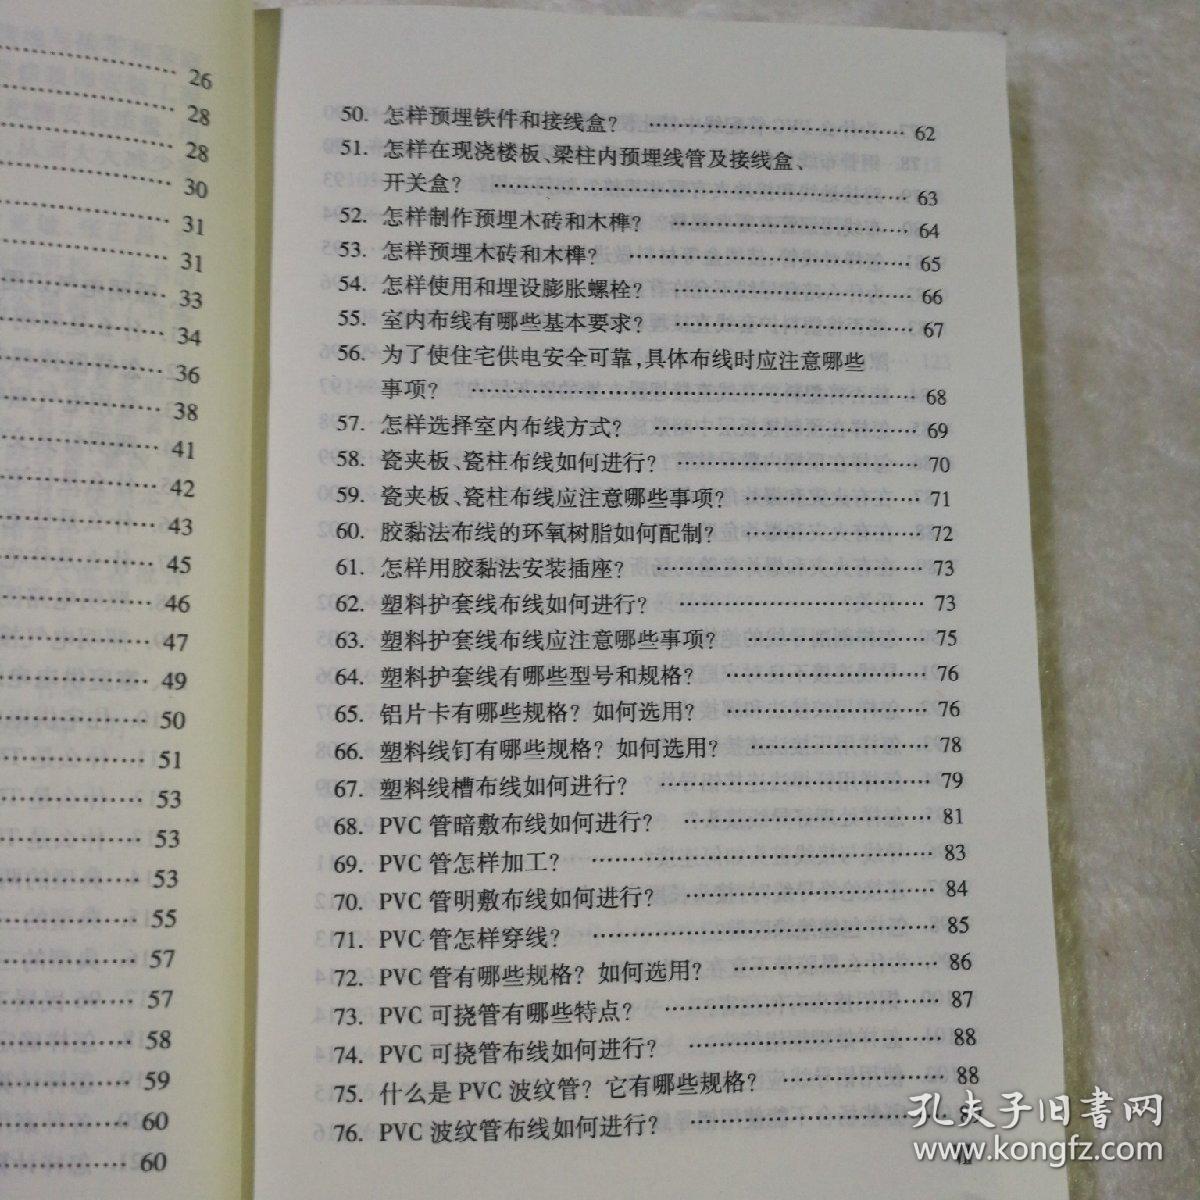 26
28
28
30
31
31
33
34
36
38
41
42
43
45
46
47
49
50
51
53
53
53
55
57
57
58
59
60
60
50. 怎样预埋铁件和接线盒? …… 62
51. 怎样在现浇楼板、梁柱内预埋线管及接线盒、
开关盒? …… 63
52. 怎样制作预埋木砖和木榫? …… 64
53. 怎样预埋木砖和木榫? …… 65
54. 怎样使用和埋设膨胀螺栓? …… 66
55. 室内布线有哪些基本要求? …… 67
56. 为了使住宅供电安全可靠,具体布线时应注意哪些
事项? …… 68
57. 怎样选择室内布线方式? …… 69
58. 瓷夹板、瓷柱布线如何进行? …… 70
59. 瓷夹板、瓷柱布线应注意哪些事项? …… 71
60. 胶黏法布线的环氧树脂如何配制? …… 72
61. 怎样用胶黏法安装插座? …… 73
62. 塑料护套线布线如何进行? …… 73
63. 塑料护套线布线应注意哪些事项? …… 75
64. 塑料护套线有哪些型号和规格? …… 76
65. 铝片卡有哪些规格? 如何选用? …… 76
66. 塑料线钉有哪些规格? 如何选用? …… 78
67. 塑料线槽布线如何进行? …… 79
68. PVC 管暗敷布线如何进行? …… 81
69. PVC 管怎样加工? …… 83
70. PVC 管明敷布线如何进行? …… 84
71. PVC 管怎样穿线? …… 85
72. PVC 管有哪些规格? 如何选用? …… 86
73. PVC 可挠管有哪些特点? …… 87
74. PVC 可挠管布线如何进行? …… 88
75. 什么是 PVC 波纹管? 它有哪些规格? …… 88
76. PVC 波纹管布线如何进行? ……
孔夫子旧书网
www.kongfz.com